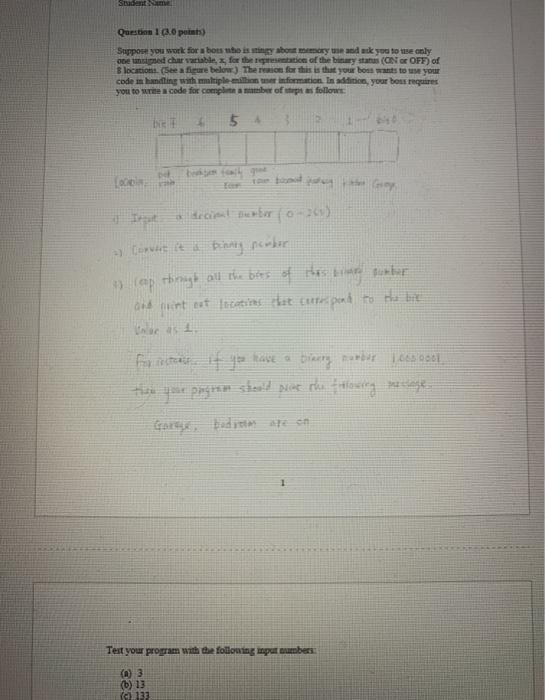 Student Name:
Question 1 (3.0 points)
Suppose you work for a boss who is stingy about memory use and ask you to use only
one unsigned char variable, x, for the representation of the binary status (ON or OFF) of
8 locations. (See a figure below.) The reason for this is that your boss wants to use your
code in handling with multiple-million user information. In addition, your boss requires
you to write a code for complete a number of steps as follows:
bit 7 6 5 4 3 2 1 bit 0
Location,
1) Input a decimal number (0-255)
2) Convert it a binary number
3) loop through all the bits of this binary number
and print out locations that correspond to the bit
Value as 1.
For instance, if you have a binary number 1000 0001,
then your program should print the following message.
Garage, bedroom are on
1
Test your program with the following input numbers:
(a) 3
(b) 13
(c) 133